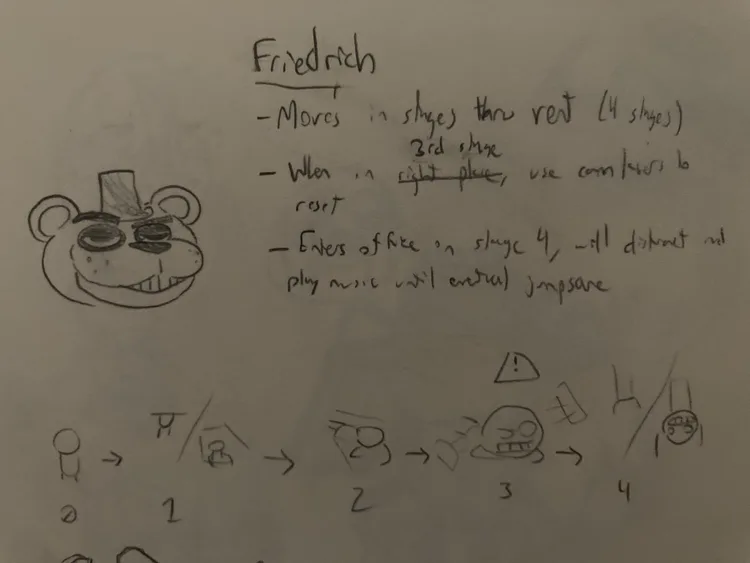 Friedrich
- Moves in stages thru vent (4 stages)
3rd stage
- When in right place, use cam lasers to
reset
- Enters office on stage 4, will distract and
play music until eventual jumpscare
!
0 1 2 3 4